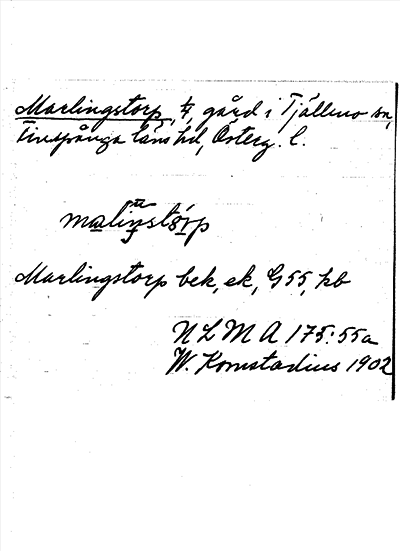 Marlingstorp, 1/4, gård i Tjällmo sn,
Finspånga läns hd, Österg. l.
malinstórp
Marlingstorp bek, ek, G 55, kb
N L M A 175:55a
W. Komstadius 1902